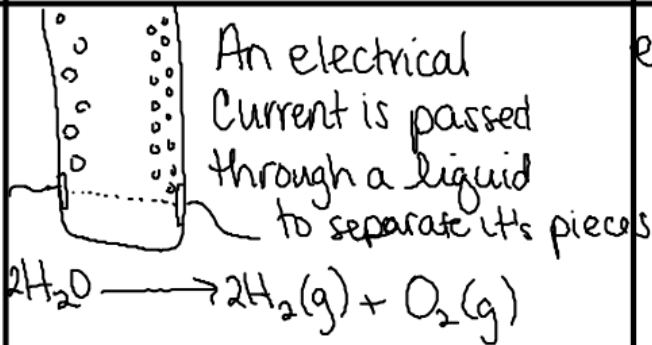 An electrical
Current is passed
through a liquid
to separate it's pieces
2H₂O → 2H₂(g) + O₂(g)